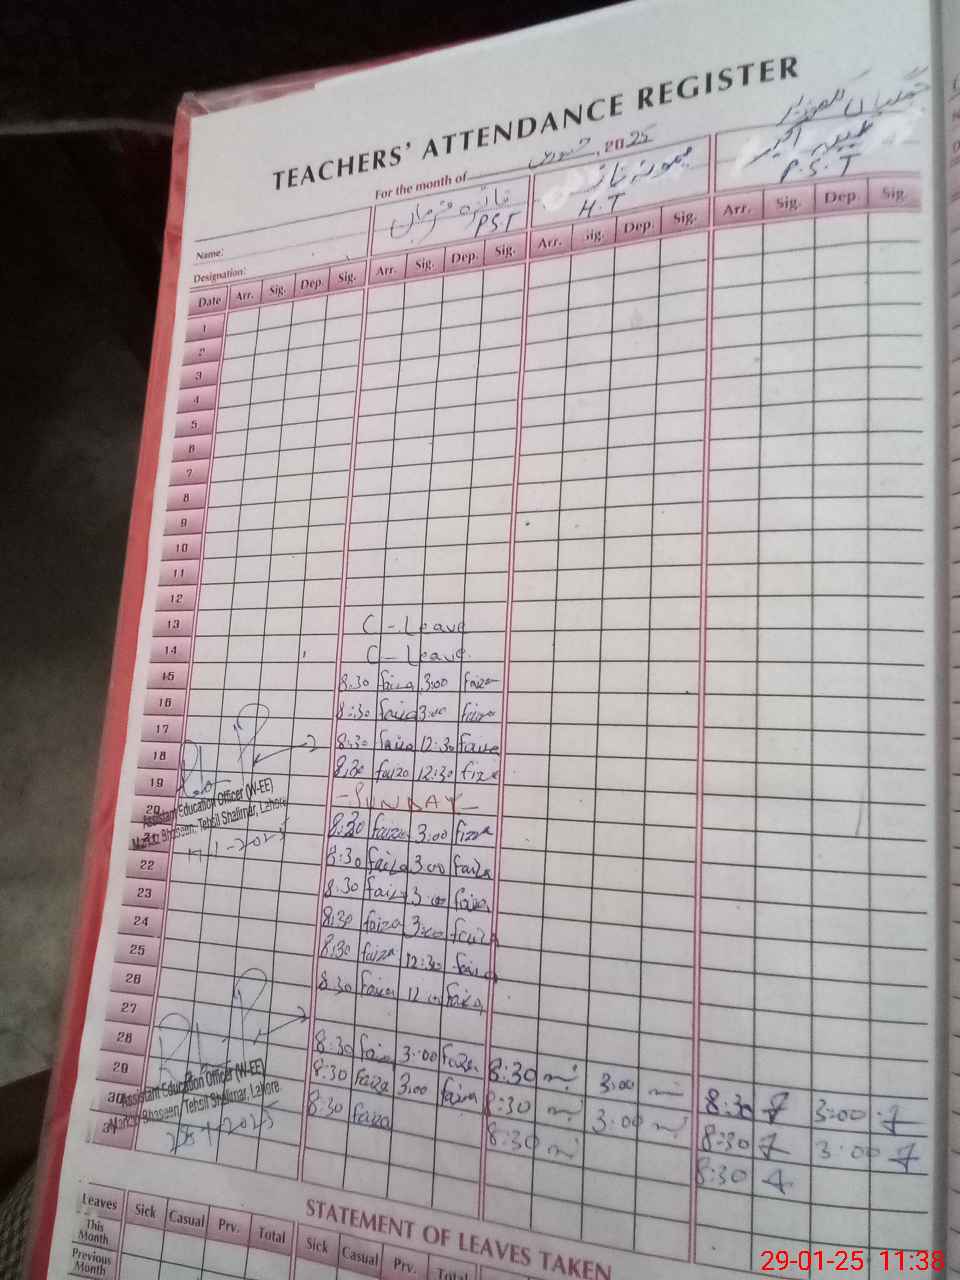 TEACHERS' ATTENDANCE REGISTER
For the month of جنوری, 2025
Name: فائزہ
Designation: PST H.T P.S.T
Date Arr. Sig. Dep. Sig. Arr. Sig. Dep. Sig. Arr. Sig. Dep. Sig. Arr. Sig. Dep. Sig.
1
2
3
4
5
6
7
8
9
10
11
12
13 C - Leave
14 C - Leave
15 8:30 faiza 3:00 faiza
16 8:30 faiza 3:00 faiza
17 8:30 faiza 12:30 faiza
18 8:30 faiza 12:30
19 - SUNDAY -
20 8:30 faiza 3:00
Assistant Education Officer (W-EE)
Tehsil Shalimar, Lahore.
21 8:30 faiza 3:00 faiza
22 8:30 faiza 3:00 faiza
23 8:30 faiza 3:00 faiza
24 8:30 faiza 12:30 faiza
25 8:30 faiza 12 faiza
26
27 8:30 faiza 3:00 faiza 8:30 3:00 8:30 3:00
28 8:30 faiza 3:00 faiza 8:30 3:00 8:30 3:00
29 8:30 faiza 8:30 8:30
30
Assistant Education Officer (W-EE)
Bhaseen, Tehsil Shalimar, Lahore.
31
STATEMENT OF LEAVES TAKEN
Leaves Sick Casual Prv. Total Sick Casual Prv. Total
This Month
Previous Month
29-01-25 11:38